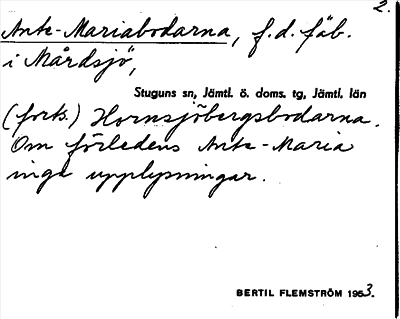 2.
Ante-Mariabodarna, f.d. fäb.
i Mårdsjö,
Stuguns sn, Jämtl. ö. doms. tg, Jämtl. län
(forts.) Hornsjöbergsbodarna.
Om förledens Ante-Maria
inga upplysningar.
BERTIL FLEMSTRÖM 1953.